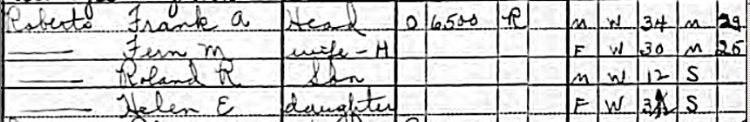 Roberts Frank A Head O 6500 R M W 34 M 29
—— Fern M wife - H F W 30 M 25
—— Roland R Son M W 12 S
—— Helen E daughter F W S